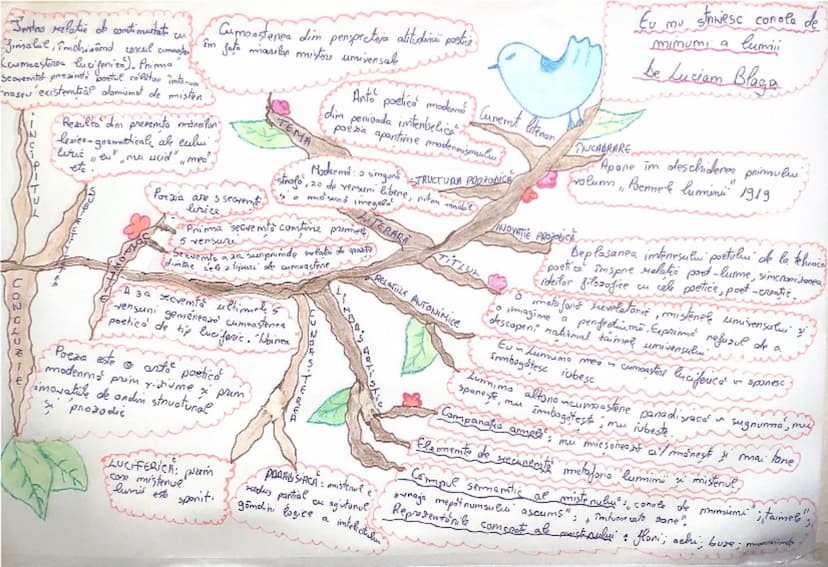 Eu nu strivesc corola de
minuni a lumii
De Lucian Blaga
Într-o relație de continuitate cu
finalul, închizând cercul cunoașterii
(cunoașterea luciferică). Prima
secvență prezintă poetul
existențial dominat de mister
Cunoașterea din perspectiva atitudinii poetice
în fața marilor mistere universale
Artă poetică modernă
din perioada interbelică
poezia aparține modernismului
Curent literar
ÎNCADRARE
Apare în deschiderea primului
volum „Poemele luminii" 1919
INCIPITUL
Rezultă din prezența mărcilor
lexico-gramaticale ale eului
liric „eu" „nu ucid", „mea"
etc.
TEMA
Modernă: o singură
strofă, 20 de versuri libere, ritm variabil
și o măsură inegală
STRUCTURA PROZODICĂ
Poezia are 3 secvențe
lirice
Prima secvență conține primele
5 versuri
Secvența a 2a surprinde relația de opoziție
dintre cele 2 tipuri de cunoaștere
LITERARĂ
INOVAȚIE PROZODICĂ
Deplasarea interesului poetului de la tehnica
poetică înspre relația poet-lume, sincronizarea
ideilor filozofice cu cele poetice, poet-creație.
TITLUL
O metaforă revelatorie, misterele universului și
o imagine a perfecțiunii. Exprimă refuzul de a
descoperi rațional tainele universului
RELAȚIILE ANTONIMICE
Eu = Lumina mea = cunoaștere luciferică = sporesc
îmbogățesc iubesc
Lumina altora=cunoaștere paradisiacă = sugrumă, nu
sporește, nu îmbogățește, nu iubește.
A 3a secvență ultimele 5
versuri generează cunoașterea
poetică de tip luciferic.
CUNOAȘTEREA
CONCLUZIE
Poezia este o artă poetică
modernă prin viziune și prin
inovațiile de ordin structural
și prozodic
LUCIFERICĂ: prin
care misterul
lumii este sporit.
PARADISIACĂ: misterul e
redus parțial cu ajutorul
gândirii logice a intelectului
Comparația amplă: nu micșorează ci mărește și mai tare
Elemente de recurență metafora luminii și misterul
Câmpul semantic al misterului: „corola de minuni"; „tainele";
„vraja nepătrunsului ascuns"; „întunecata zare".
Reprezentările concrete ale misterului: flori; ochi; buze; morminte